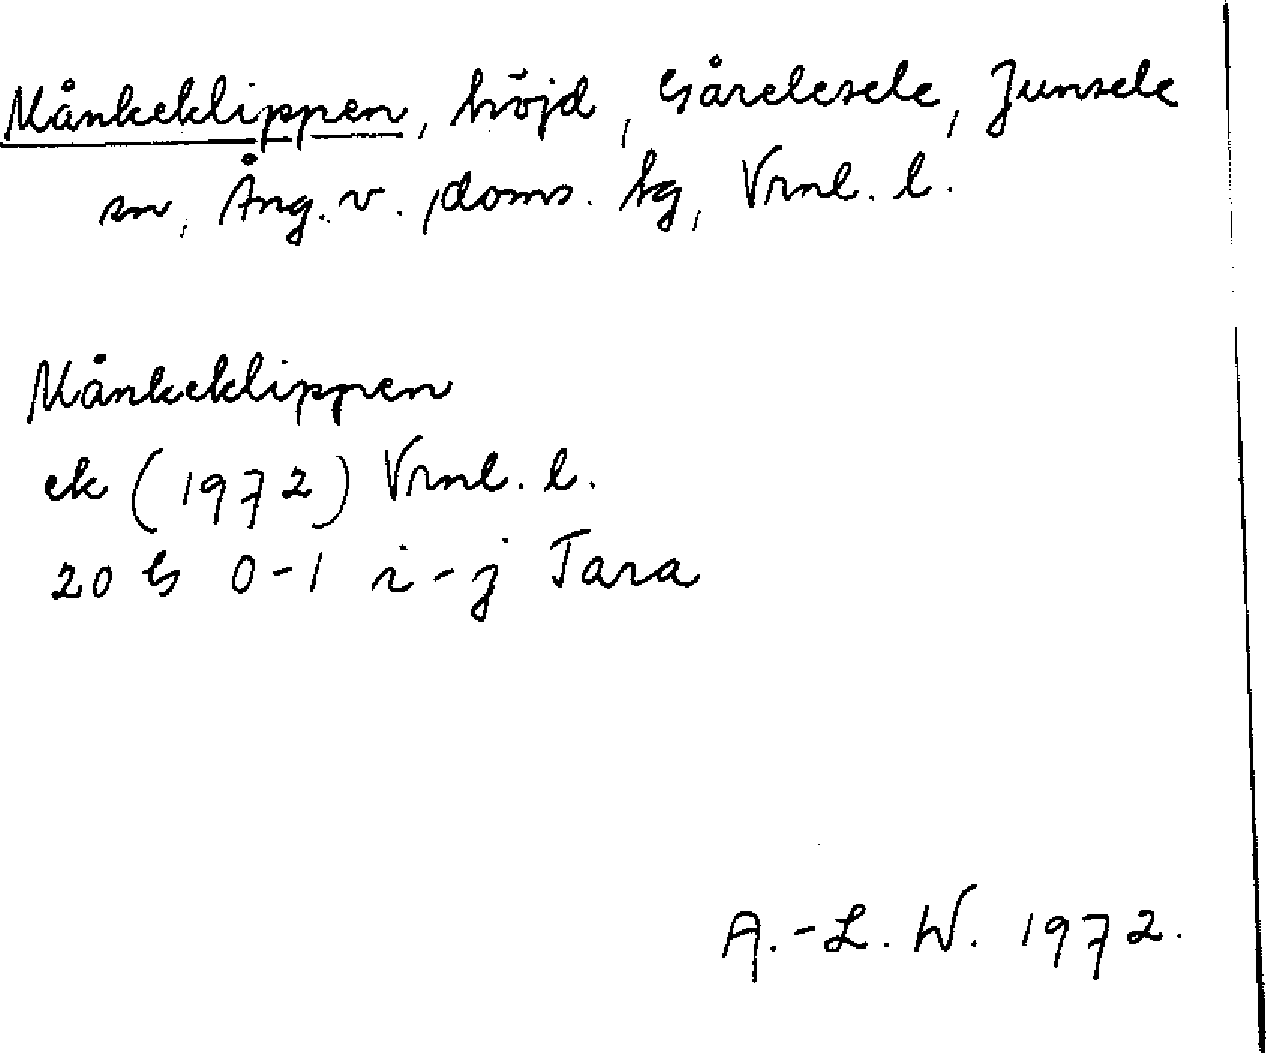 Månkeklippen, höjd, Gårelesele, Junsele
sn, Ång. v. doms. hg, Vrnl. l.
Månkeklippen
ek (1972) Vrnl. l.
20 G 0-1 i-j Tara
A.-L. W. 1972.